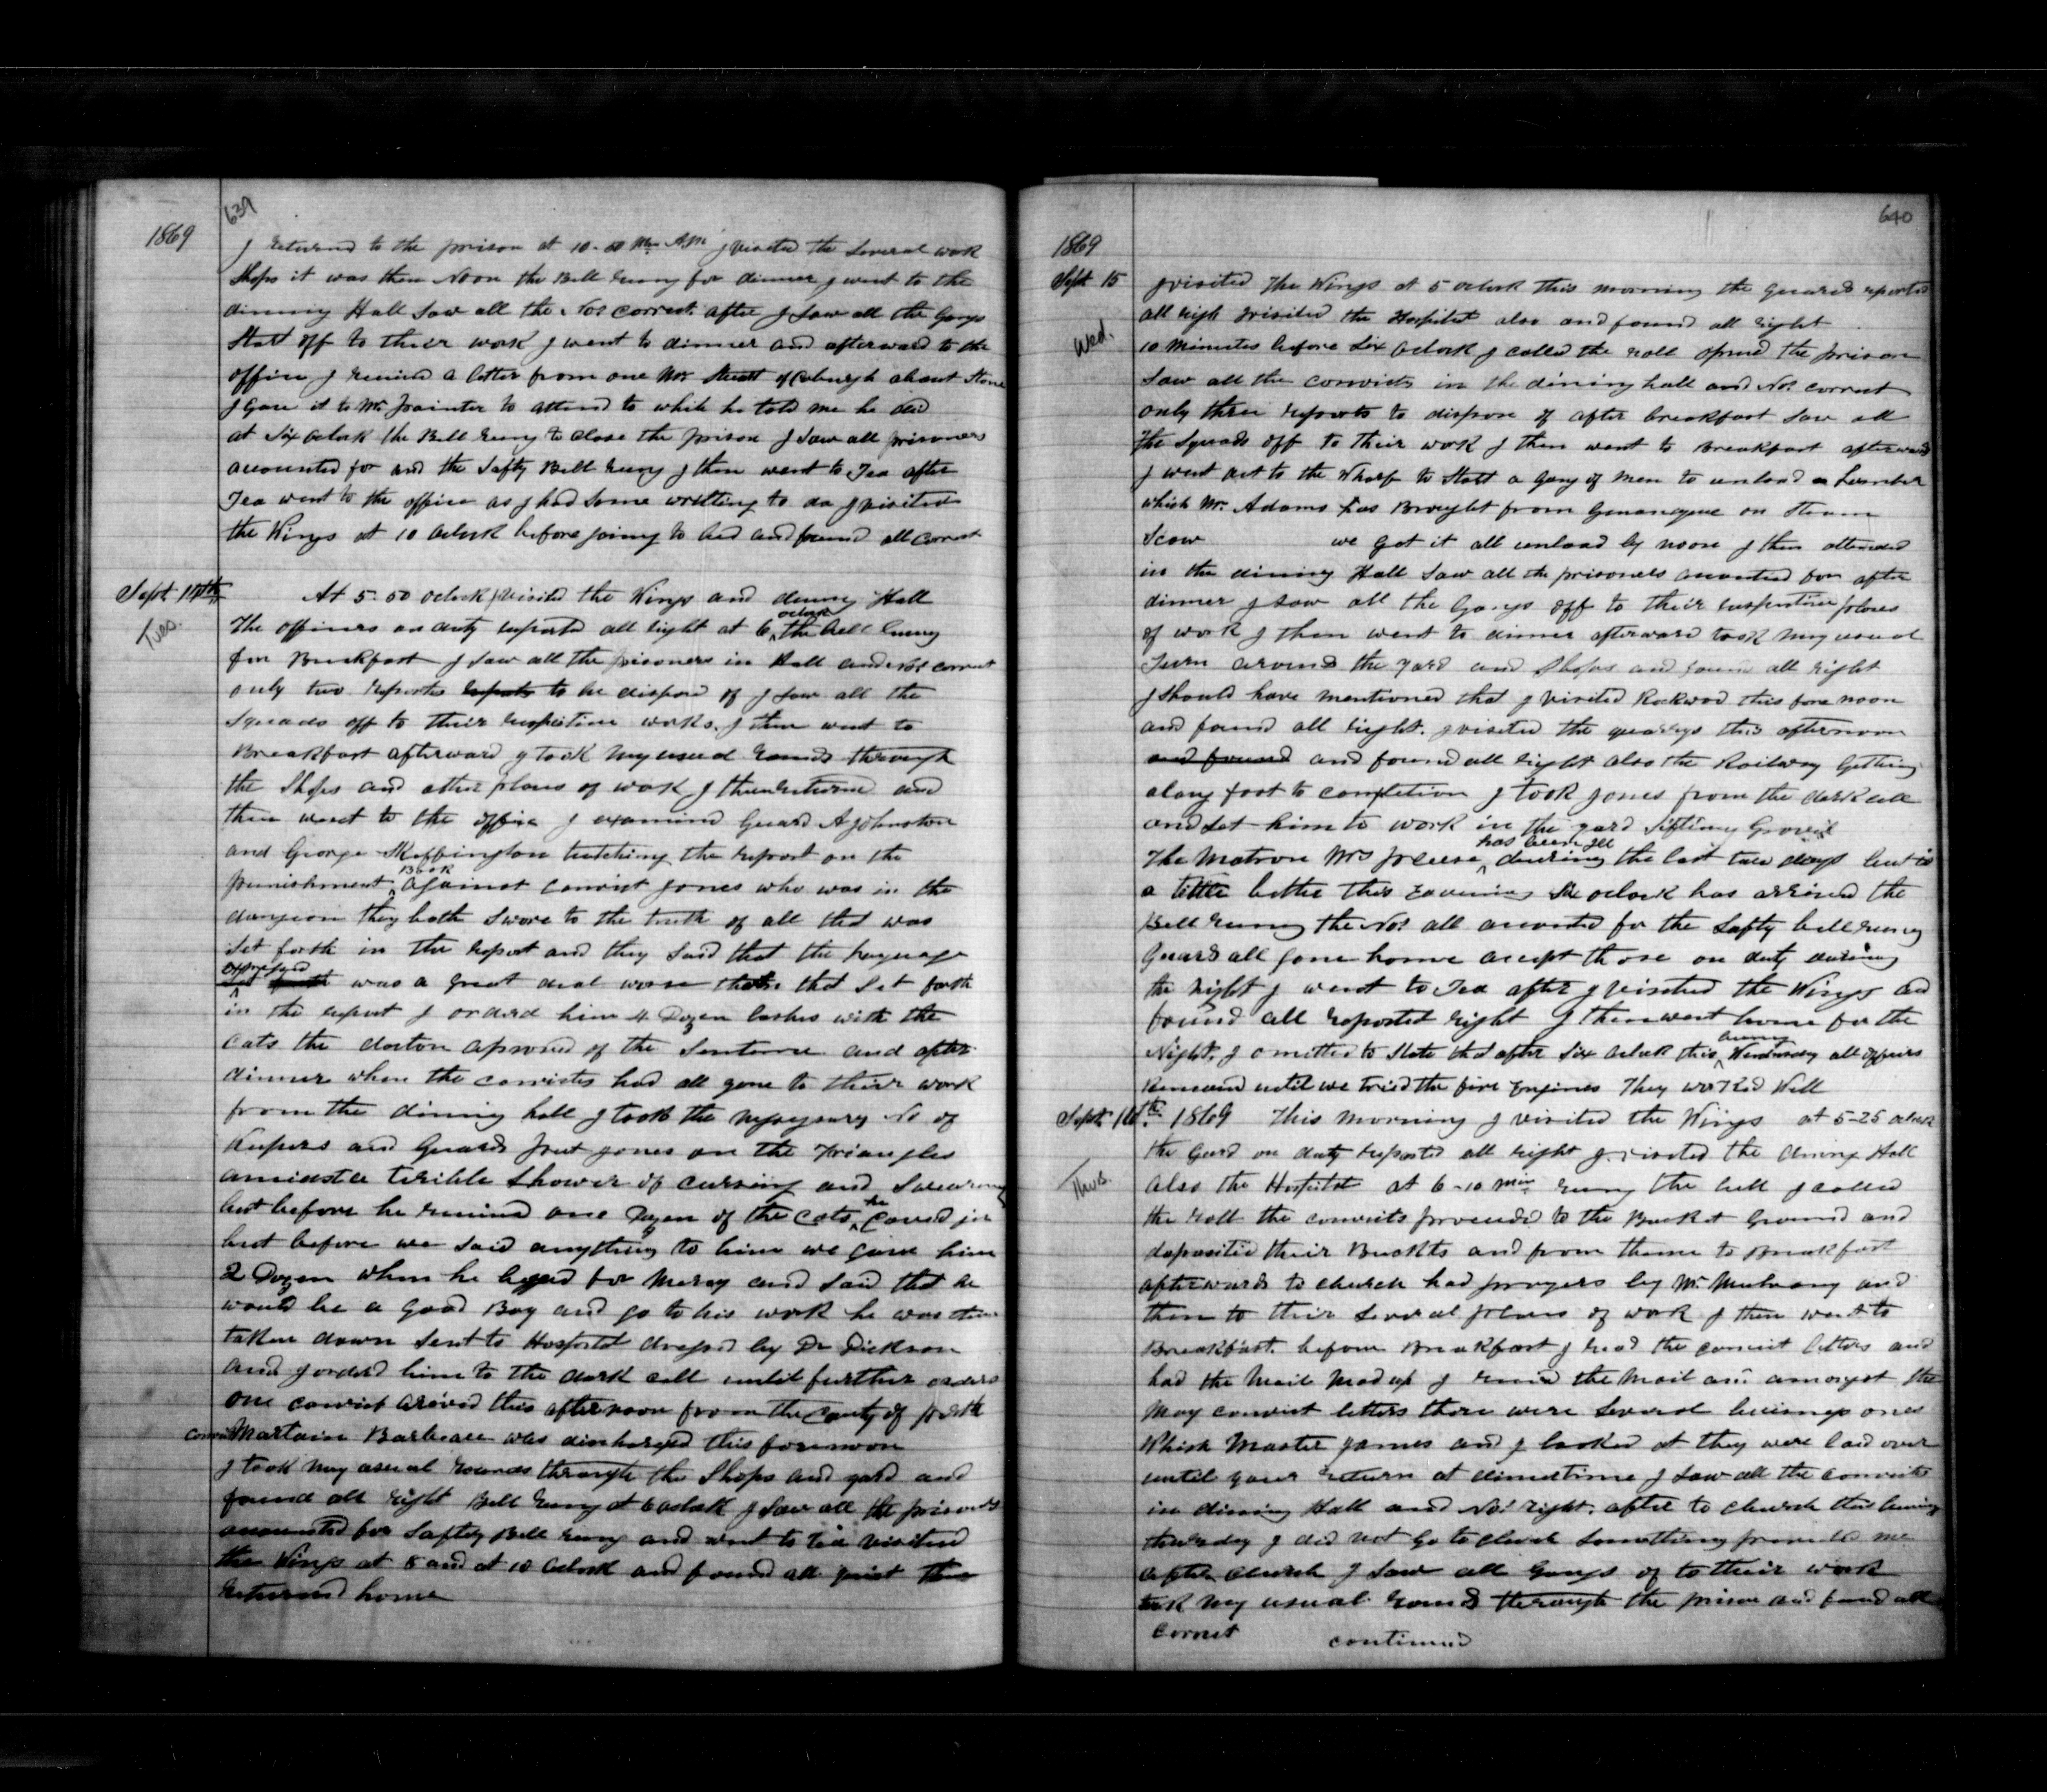 639
1869
I returnd to the prison at 10-50 Mn A.M I visited the several work
Shops it was then Noon the Bell rung for dinner I went to the
dinning Hall Saw all the Nos correct after I saw all the Gangs
Start off to their work I went to dinner and afterward to the
office I received a letter from one Mr of Coburgh about Stone
I gave it to Mr Painter to attend to which he told me he did
at Six Oclock the Bell rung to close the prison I saw all prisoners
accounted for and the Safty Bell rung I then went to Tea after
Tea went to the office as I had some writting to do I visited
the Wings at 10 Oclock before going to bed and found all correct
Sept 14th
Tues.
At 5-50 oclock I visited the Wings and dinning Hall
The officers on duty reported all right at 6 oclock the bell rung
for Breakfast I saw all the prisoners in Hall and Nos correct
only two reportes reports to be dispose of I saw all the
Squads off to their respective works. I then went to
Breakfast afterward I took my usual rounds through
the Shops and other places of work I then returned and
then went to the office I examined Guard A Johnston
and George Skeffington tutching the report on the
punishment Book against convict Jones who was in the
dungeon they both swore to the truth of all that was
Set forth in the report and they said that the language
expressed was a great deal worse that Set forth
in the report I orderd him 4 Dozen lashes with the
Cats the doctor aproved of the Sentence and after
dinner when the convicts had all gone to their work
from the dinning hall I took the nessesary No of
Keepers and Guards put Jones on the Triangles
amidst a terible Shower of cursing and Swearing
but before he received one Dozen of the Cats he caved in
but before we said anything to him we gave him
2 Dozen when he beged for Mercy and said that he
would be a Good Boy and go to his work he was then
taken down sent to Hospital dressed by Dr Dickson
and I orderd him to the dark cell until further orders
one convict arived this afternoon from the County of Perth
Convict Martain was discharged this forenoon
I took my usual rounds through the Shops and yard and
found all right Bell rung at 6 oclock I saw all the prisoners
accounted for Saftey Bell rung and went to tea visited
the Wings at 8 and at 10 Oclock and found all quiet then
returned home
640
1869
Sept 15
Wed.
I visited The Wings at 5 oclock this morning the guards reported
all right I visited the Hospital also and found all right
10 Minutes before Six Oclock I called the roll opened the prison
Saw all the convicts in the dining hall and Nos correct
only three reports to dispose of after breakfast saw all
The Squads off to their work I then went to Breakfast afterward
I went out to the Wharf to Start a gang of men to unload Lumber
which Mr. Adams has Brought from Gananaque on Steam
Scow we got it all unload by noon I then attended
in the dining Hall Saw all the prisoners accounted for after
dinner I saw all the Gangs off to their respective places
of work I then went to dinner afterward took my usual
Turn around the yard and Shops and found all right
I should have mentioned that I visited Rockwood this fore noon
and found all right. I visited the quarrys this afternoon
and found and found all right also the Railway Getting
along fast to completion I took Jones from the dark cell
and set him to work in the yard Sifting Gravel
The Matron Mrs has been ill during the last two days but is
a little better this Eavening Six oclock has arrived the
Bell rung the Nos all accounted for the Safty bell rung
Guard all gone home accept those on duty during
the night I went to Tea after I visited the Wings and
found all reported right I then went home for the
Night. I omitted to State that after Six Oclock this Wendnesday all officers
Remained until we tried the fire Engines They worked Well
Sept 16th. 1869 This morning I visited the Wings at 5-25 oclock
Thurs.
the Guard on duty reported all right I visited the dining Hall
also the Hospital at 6-10 min rung the bell I called
the roll the convicts proceded to the Bucket Ground and
deposited their Buckets and from thence to Breakfast
afterwards to church had prayers by Mr. Mulvany and
then to their several places of work I then went to
Breakfast. before Breakfast I read the convict letters and
had the Mail Mad up I received the Mail and amongst the
May convict letters there were several buisness ones
Which Master James and I looked at they were laid over
until your return at dinnertime I saw all the convicts
in dinning Hall and Nos right. after to church this being
thursday I did not Go to church something prevented me
after church I saw all Gangs of to their work
took my usual rounds through the prison and found all
Correct continued